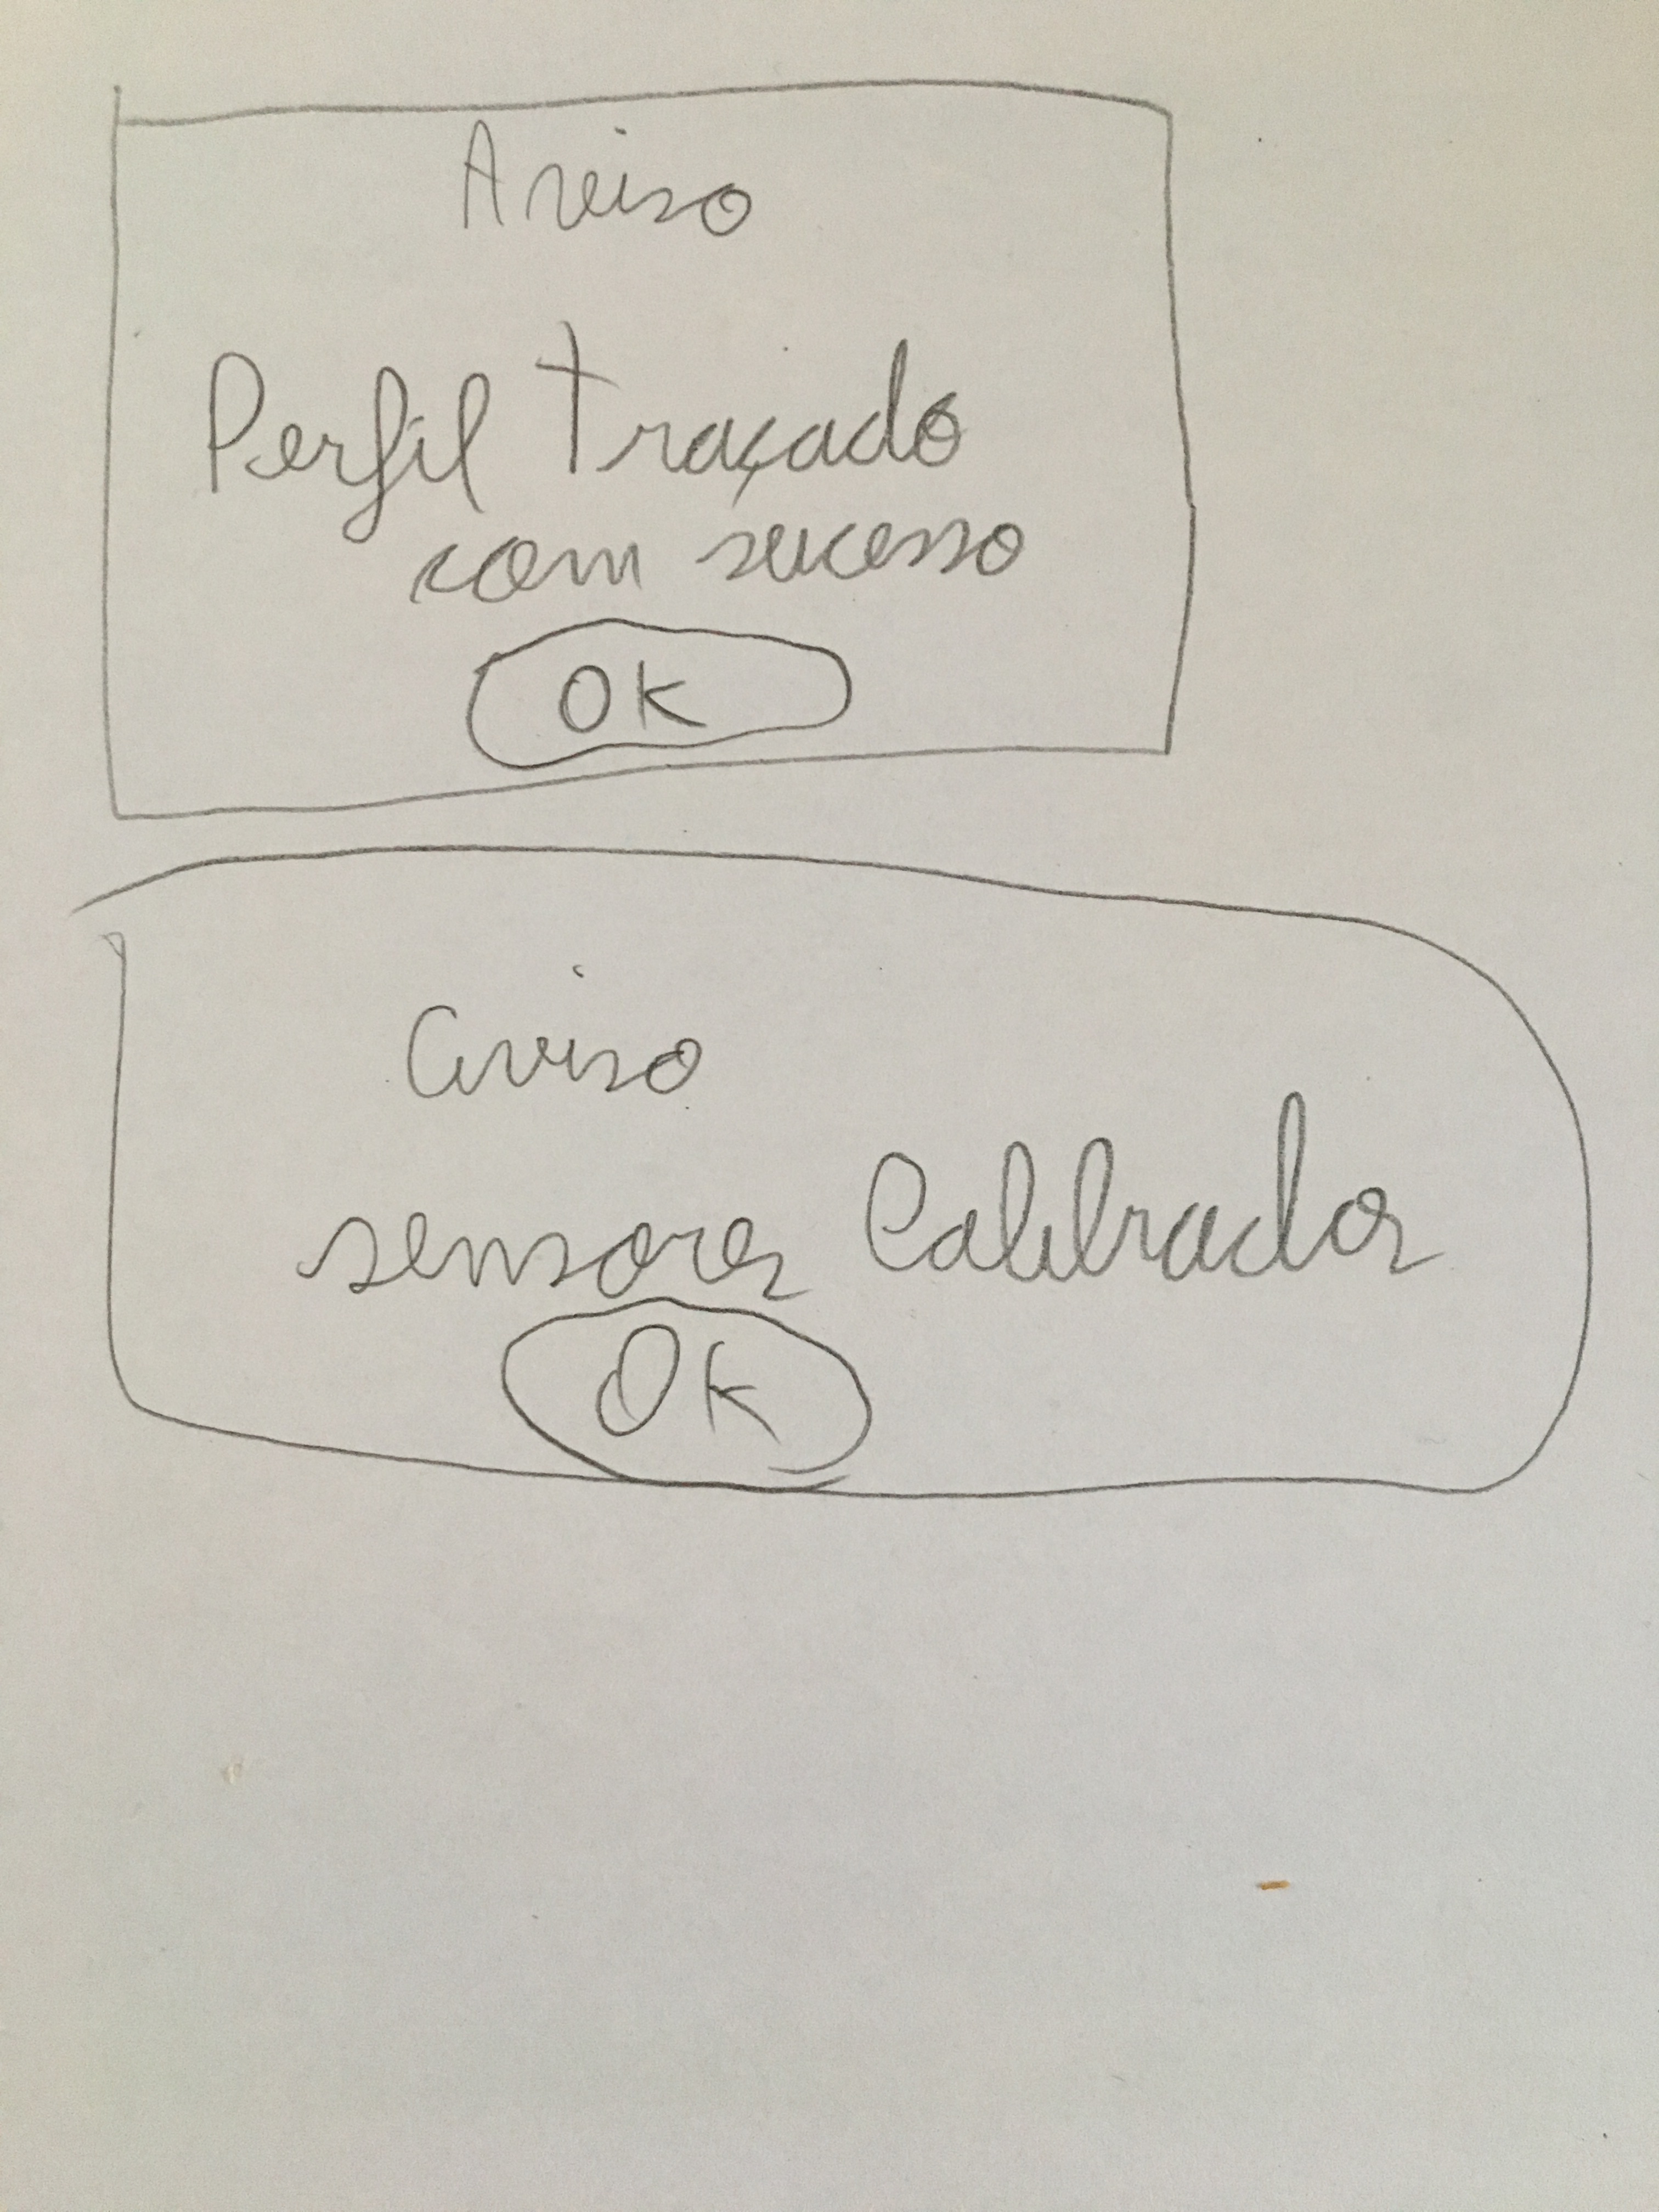 Aviso
Perfil Traçado
com sucesso
OK
aviso
sensores Calibrados
OK